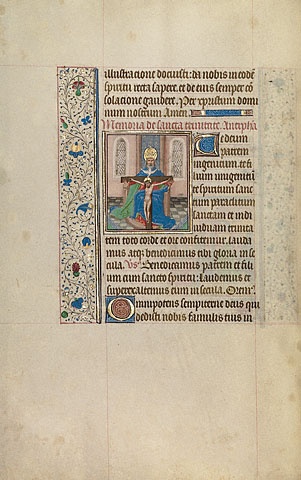 illustracione docuisti: da nobis in eodē
spiritu recta sapere. et de eius semper cō
solacione gaudere. Per xpristum domi
num nostrum Amen
Memoria de sancta trinitate. Antepha
Te deum
patrem
ingenitum. te fi
lium unigenitū
te spiritum sanc
tum paraclitum
sanctam et indi
uiduam trinita
tem toto corde et ore confitemur. lauda
mus atq; benedicimus tibi gloria in se
cula. Vs. Benedicamus patrem et fili
um cum sancto spiritu: Laudemus et
superexaltemus eum in secula. Orem9.
Omnipotens sempiterne deus qui
dedisti nobis famulis tuis in